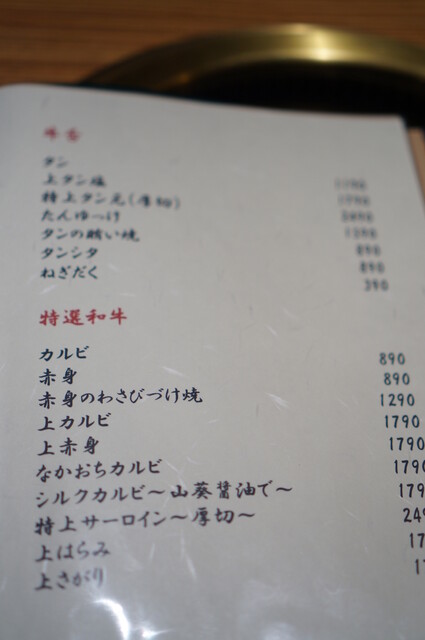 牛舌
タン 1190
上タン塩 1790
特上タン元(厚切) 2490
たんゆっけ 1290
タンの賄い焼 890
タンシタ 890
ねぎだく 390
特選和牛
カルビ 890
赤身 890
赤身のわさびづけ焼 1290
上カルビ 1790
上赤身 1790
なかおちカルビ 1790
シルクカルビ〜山葵醤油で〜 179
特上サーロイン〜厚切〜 249
上はらみ 17
上さがり 1